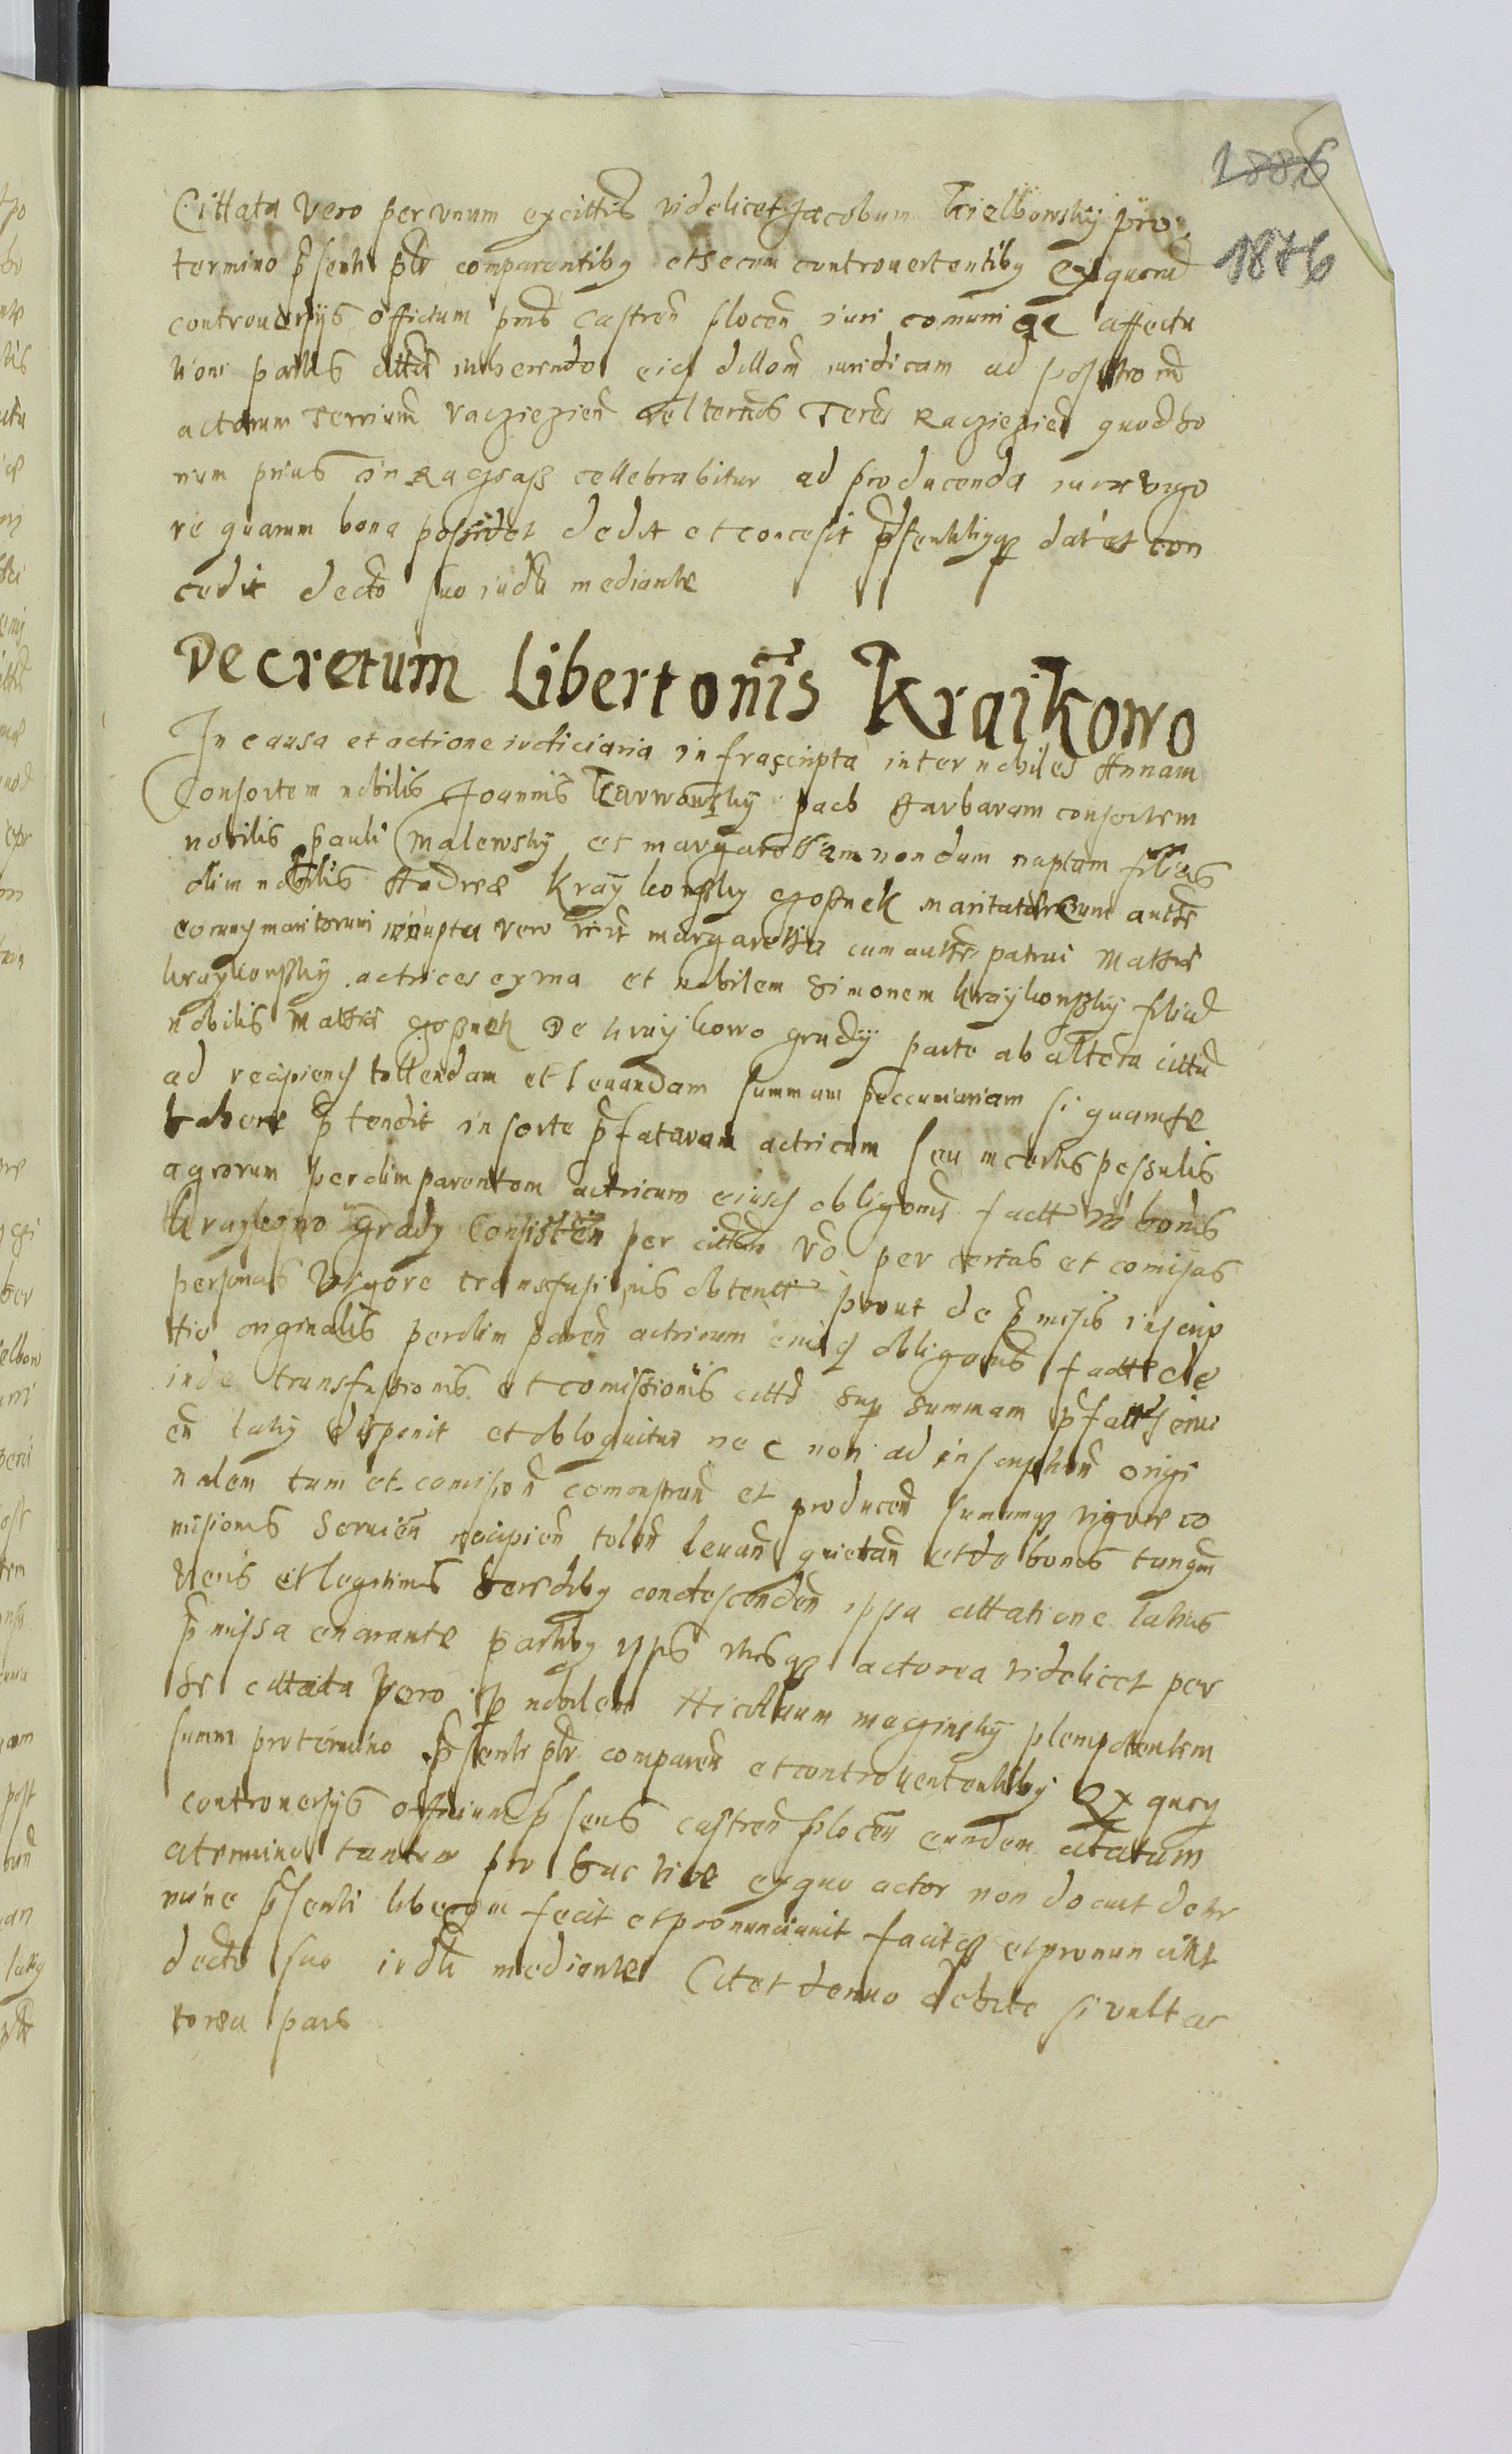 1886
1846
Cittata vero per unum ex cittis videlicet Jacobum Kielbowskÿ pro
termino psenti pltr comparentiby et secum controvertentiby Ex quoru
controversÿs officium pns Castren plocen iuri comuni ac affecta
tioni partis cittate inherendo eid dillom iuridicam ad
actorum Terrium raczięzien vel ternos Teres Racziezien quod bo
rum prius in Raczÿaß cellebrabitur ad producenda iura vigo
re quarum bona possidet dedit et concesit psentibyq dat et con
cedit decto suo iudli mediante
Decretum Libertonis Kraikowo
In causa et actione iudiciaria infrascripta inter nobiles Annam
Consortem nobilis Joannis Karwowskÿ pacb Barbaram consortem
nobilis pauli Malewskÿ et margarettam nondum nuptam filias
olim nobilis Andreæ Kraÿkowskÿ goßnek maritatæ cum autte
eorum maritorum innupta vero margaretta cum autte patrui Mattei
kraykowskÿ actrices ex una et nobilem Simonem kraÿkowskÿ filiu
nobilis Mattei goßnek De kraÿkowo grudÿ parte ab altera cittu
ad recipiend tollendam et levandam summam peccuniariam si quam se
habere ptendit in sorte pfatarum actricum seu in certis pessulis
agrorum per olim parentem actricum eiusd obligonis factt in bonis
kraykowo grady Consisten per cittum vo per certas et comisas
personas vigore transfusionis obtentt prout de pmisis inscrip
tio originalis per olim paren actricum obligonis factt de
inde transfusionis et comissionis citto sup summam pfatt servi
en latiÿ disponit et obloquitur nec non ad inscription origi
nalem tum et comision comonstran et producen summamq vigore co
misionis Servien recipien tolen levan quietan et de bonis tanqm
veris et legitimis heredib condescenden ipsa cittatione latius
pmissa enarrante partiby ipsis utrisq actorea videlicet per
se cittata vero p nobilem Nicolaum maczinskÿ plenipotentem
suum pro termino psenti pltr comparen et controvertentiby Ex quoru
controversÿs officium psens castren plocen eundem citatum
a termino tantum pro hac vice ex quo actor non docuit de ter
mino psenti liberum fecit et pronunciavit facitq et pronunciat
decto suo iudli mediante Citet denuo debite si vult ac
torea pars